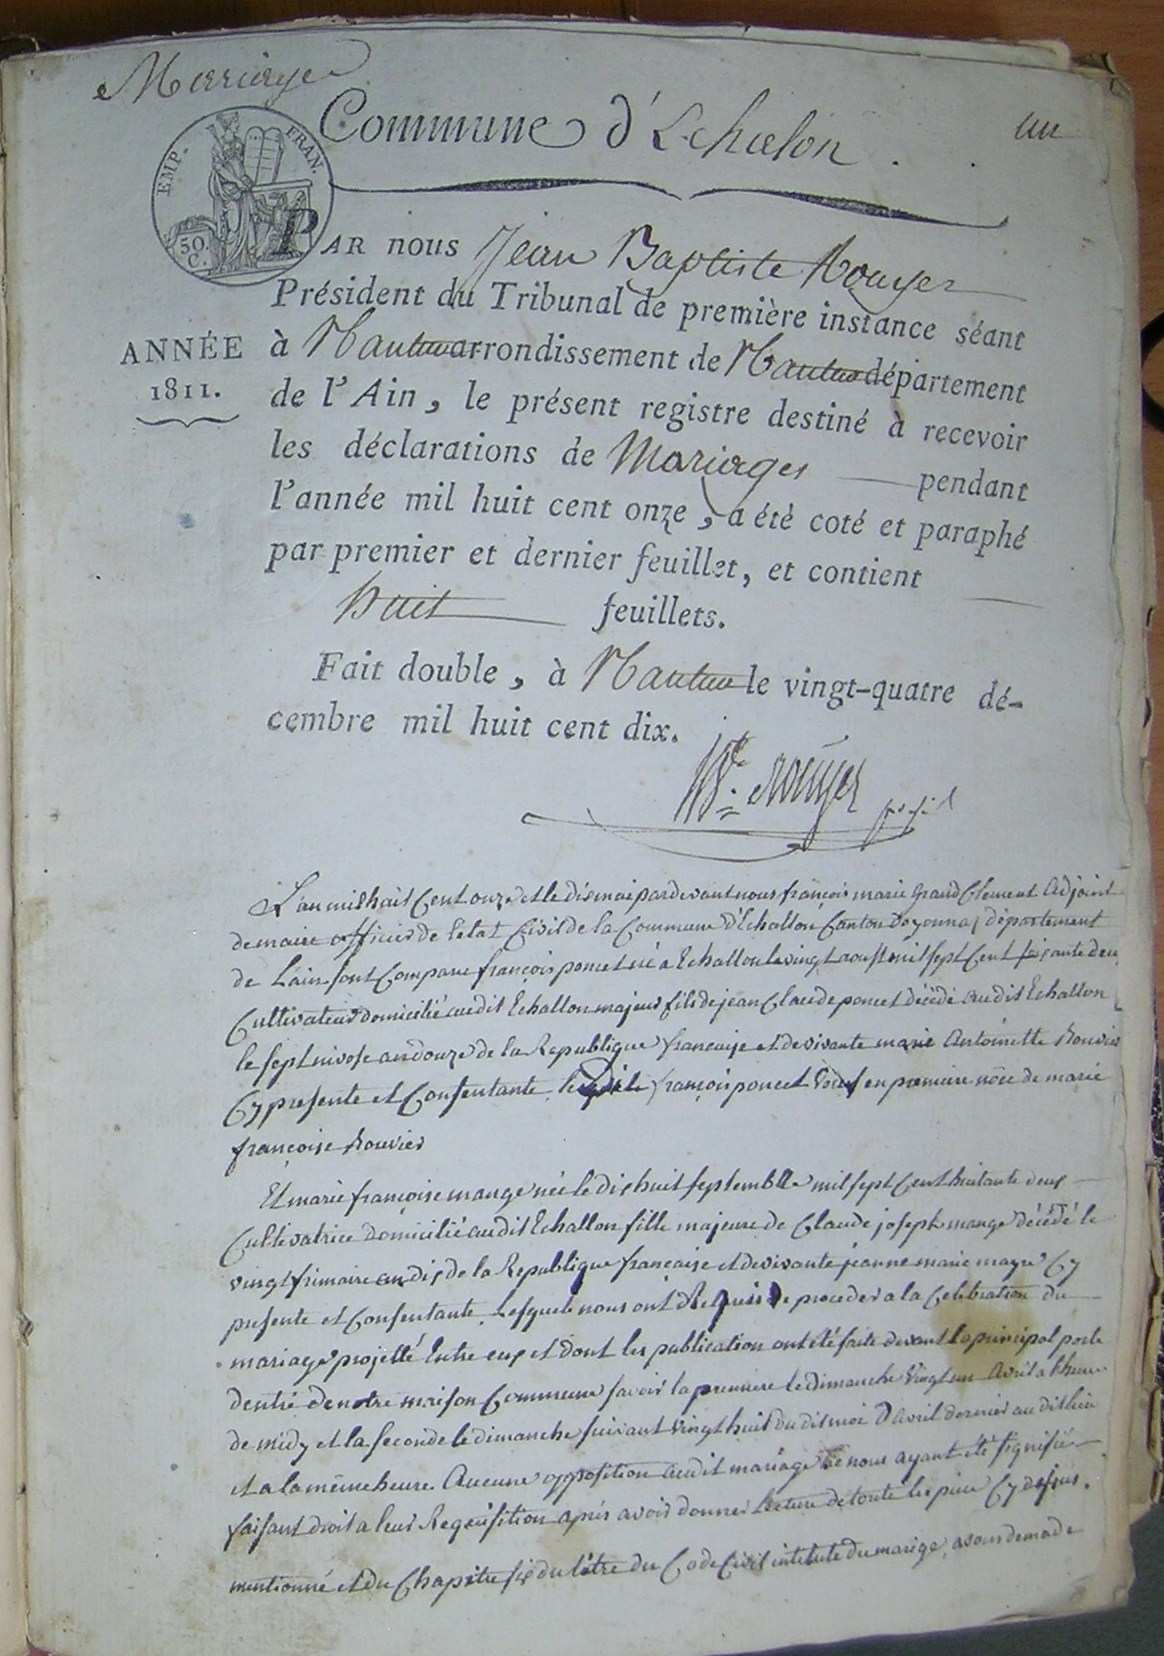 Marriage
Commune d'Echalon
un
EMP. FRAN.
50. C.
PAR nous Jean Baptiste Rouyer
Président du Tribunal de première instance séant
ANNÉE
1811.
à Nantua arrondissement de Nantua département
de l'Ain, le présent registre destiné à recevoir
les déclarations de Mariages pendant
l'année mil huit cent onze, a été coté et paraphé
par premier et dernier feuillet, et contient
huit feuillets.
Fait double, à Nantua le vingt-quatre dé-
cembre mil huit cent dix.
Rouyer
L'an mil huit Cent onze et le dis mai pardevant nous françois marie grand Clement Adjoint
de maire officier de letat Civil de la Commune d'Echallon Canton Doyonnaz département
de Lain sont Comparu françois poncet né a Echallon le vingt aoust mil sept Cent soixante deux
Cultivateur domicilié audit Echallon majeur fils de jean Claude poncet décédé audit Echallon
le sept nivose an douze de la Republique francaise et de vivante marie Antoinette Rouvier
Cy presente et Consentante françois poncet veuf en premiere nôce de marie
françoise Rouvier
Et marie françoise mange née le dis huit septembre mil sept Cent huitante deux
Cultivatrice domicilié audit Echallon fille majeure de Claude joseph mange décédé le
vingt frimaire an dis de la Republique francaise et de vivante jeanne marie mayre Cy
presente et Consentante. Lesquels nous ont Requis de proceder a la Celebration du
mariage projetté Entre eux et dont les publication ont été faite devant la principal porte
dentré de notre maison Commune savoir la premiere le dimanche vingt un avril a lheure
de midy et la seconde le dimanche suivant vingt huit du dit moi D'avril dernier au dit lieu
et a la même heure. Aucune opposition audit mariage ne nous ayant été signifiée
faisant droit a leur Requisition après avoir donner Lecture de toute les piece Cy dessus.
mentionné et du Chapitre six du titre du Code Civil intitulé du mariage, avons demade